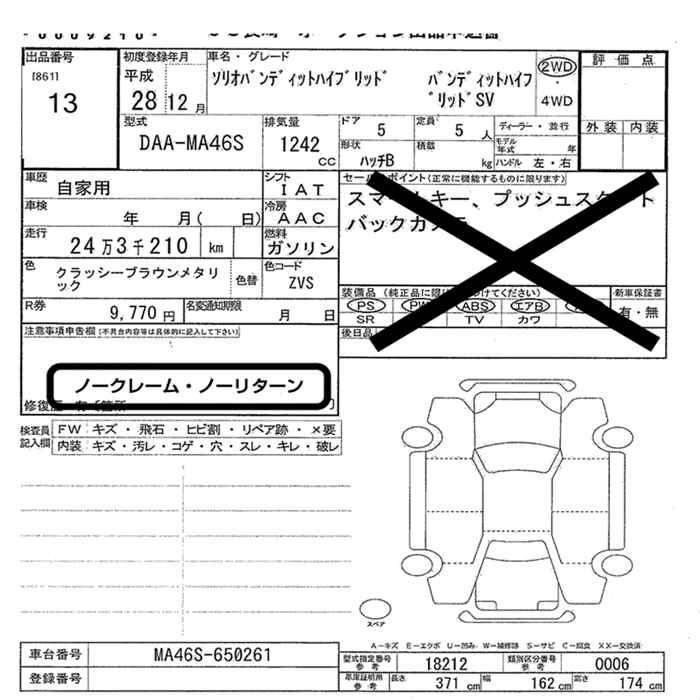 出品番号
[861]
13
初度登録年月
平成
28 12 月
車名・グレード
ソリオバンディットハイブリッド バンディットハイブ
リッドSV
2WD
・
4WD
評価点
外装 内装
型式
DAA-MA46S
排気量
1242
cc
ドア 5
定員 5 人
形状
ハッチB
積載
kg
ディーラー・並行
モデル
年式 年
ハンドル 左・右
車歴
自家用
シフト
IAT
セールスポイント(正常に機能するものに限ります)
車検
年 月( 日)
冷房
AAC
バックカメラ
走行
24万3千210 km
燃料
ガソリン
色
クラッシーブラウンメタリ
ック
色替
色コード
ZVS
装備品
PS ABS エアB
SR TV カワ
新車保証書
有・無
R券
9,770 円
名変通知期限
月 日
後日品
注意事項申告欄 (不具合内容等は具体的に記入して下さい)
ノークレーム・ノーリターン
検査員
記入欄
FW キズ・飛石・ヒビ割・リペア跡・×要
内装 キズ・汚レ・コゲ・穴・スレ・キレ・破レ
スペア
A-キズ E-エクボ U-凹み W-補修跡 S-サビ C-腐食 XX-交換済
車台番号 MA46S-650261
登録番号
型式指定番号
参考
18212
類別区分番号
参考
0006
車庫証明用
参考
長さ 371 cm 幅 162 cm 高さ 174 cm